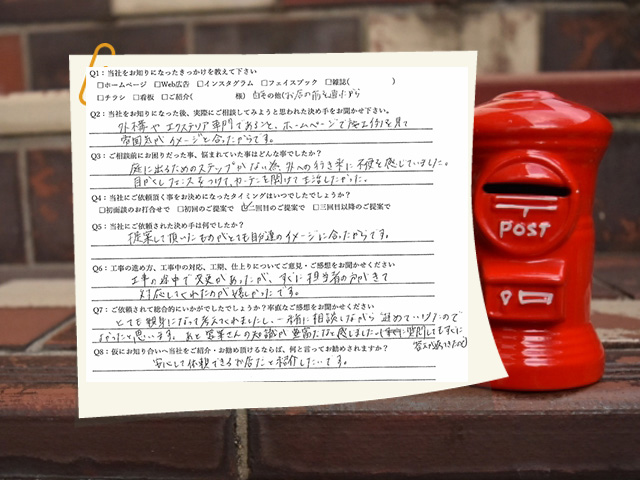 Q1：当社をお知りになったきっかけを教えて下さい
□ホームページ □Web広告 □インスタグラム □フェイスブック □雑誌( )
□チラシ □看板 □ご紹介( 様) ☑その他(お店の前を通ったから
Q2：当社をお知りになった後、実際にご相談してみようと思われた決め手をお聞かせ下さい。
外構やエクステリア専門であること、ホームページで施工例を見て
雰囲気がイメージと合ったからです。
Q3：ご相談前にお困りだった事、悩まれていた事はどんな事でしたか？
庭に出るためのステップがない為、外への行き来に不便を感じていました。
目かくしフェンスをつけて、カーテンを開けて生活したかった。
Q4：当社にご依頼頂く事をお決めになったタイミングはいつでしたでしょうか？
□初面談のお打合せで □初回のご提案で ☑二回目のご提案で □三回目以降のご提案で
Q5：当社にご依頼された決め手は何でしたか？
提案して頂いたものがとても自分達のイメージに合ったからです。
Q6：工事の進め方、工事中の対応、工期、仕上りについてご意見・ご感想をお聞かせください
工事の途中で変更があったが、すぐに担当者の方がきて
対応してくれたのが嬉しかったです。
Q7：ご依頼されて総合的にいかがでしたでしょうか？率直なご感想をお聞かせください
とても親身になって考えてくれましたし、一緒に相談しながら進めていけたので
よかったと思います。あと営業さんの知識が豊富だなと感じました(事前に質問してもすぐに
答えが返ってきたので)
Q8：仮にお知り合いへ当社をご紹介・お勧め頂けるならば、何と言ってお勧めされますか？
安心して依頼できるお店だと紹介したいです。
POST